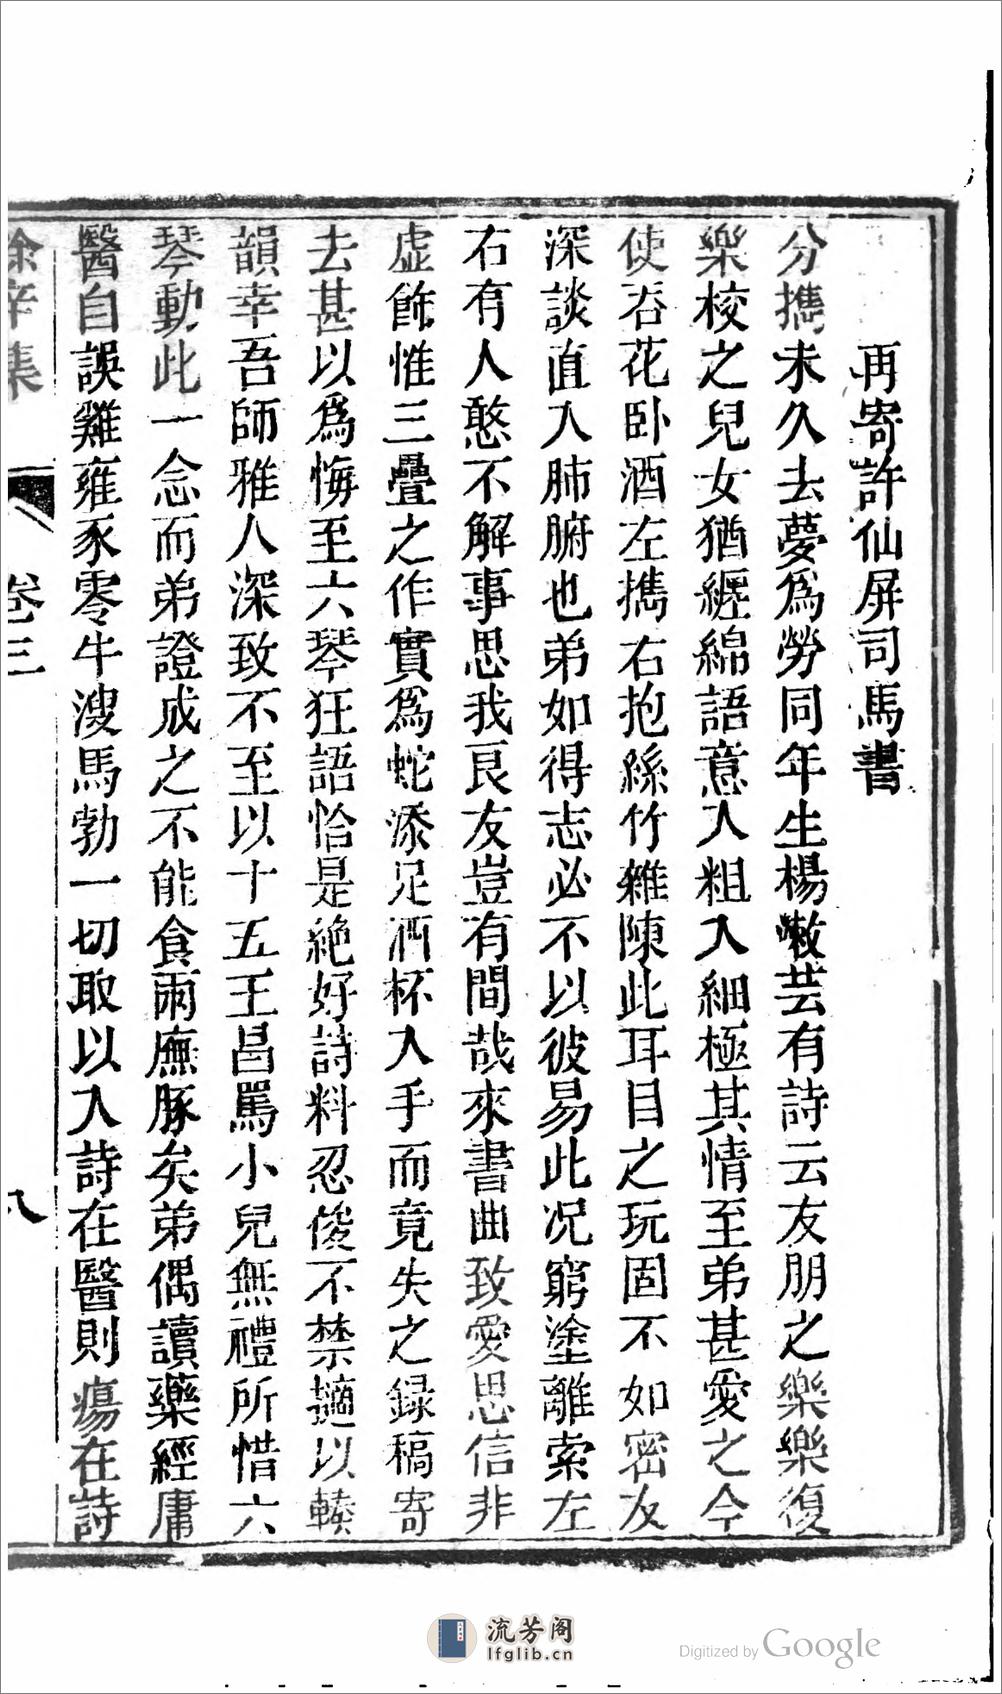 再寄許仙屏司馬書
分攜未久去夢爲勞同年生楊漱芸有詩云友朋之樂樂復
樂校之兒女猶纏綿語意入粗入細極其情至弟甚愛之今
使吞花卧酒左攜右抱絲竹雜陳此耳目之玩固不如密友
深談直入肺腑也弟如得志必不以彼易此况窮塗離索左
右有人憨不解事思我良友豈有間哉來書曲致愛思信非
虛飾惟三疊之作實爲蛇添足酒杯入手而竟失之録稿寄
去甚以爲悔至六琴狂語恰是絶好詩料忍俊不禁擿以轃
韻幸吾師雅人深致不至以十五王昌罵小兒無禮所惜六
琴動此一念而弟證成之不能食兩廡豚矣弟偶讀藥經庸
醫自誤雞雍豕零牛溲馬勃一切取以入詩在醫則瘍在詩
餘辛集
卷三
八
流芳阁
lfglib.cn
Digitized by Google